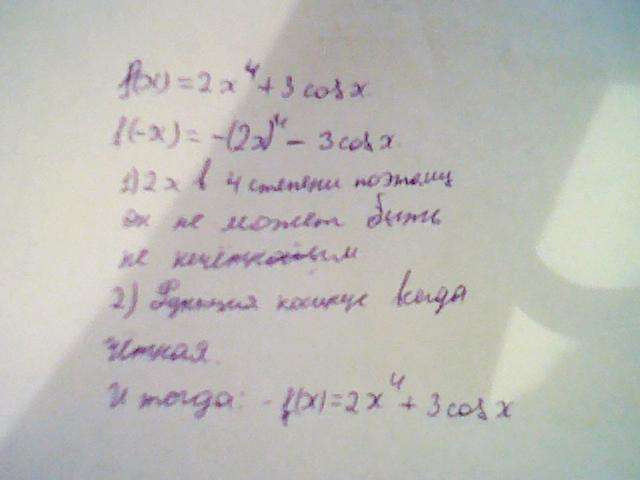 f(x) = 2x⁴ + 3 cos x
f(-x) = -(2x)⁴ - 3 cos x
1) 2x в 4 степени поэтому
он не может быть
не нечётным
2) Функция косинус всегда
чётная.
И тогда: -f(x) = 2x⁴ + 3 cos x